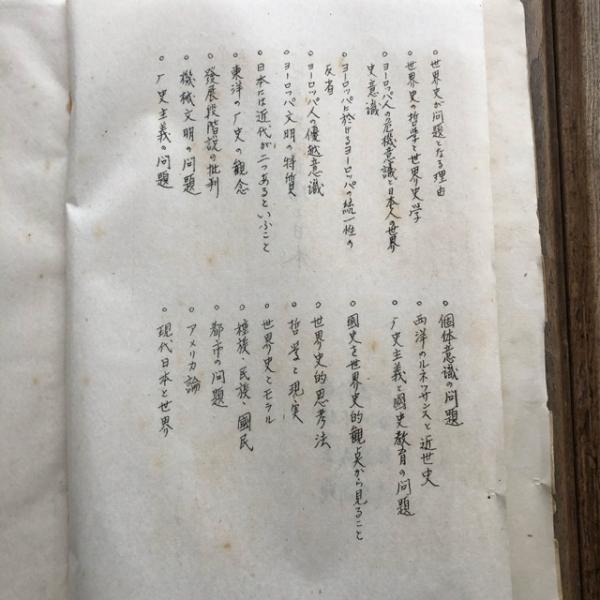 。世界史が問題となる理由
。世界史の哲学と世界史学
。ヨーロッパ人の危機意識と日本人の世界
史意識
。ヨーロッパに於けるヨーロッパの統一性の
反省
。ヨーロッパ人の優越意識
。ヨーロッパ文明の特質
。日本には近代が二つあるといふこと
。東洋の厂史の観念
。發展段階説の批判
。機械文明の問題
。厂史主義の問題
。個体意識の問題
。西洋のルネッサンスと近世史
。厂史主義と國史教育の問題
。國史を世界史的観点から見ること
。世界史的思考法
。哲学と現実
。世界史とモラル
。種族・民族・國民
。都市の問題
。アメリカ論
。現代日本と世界